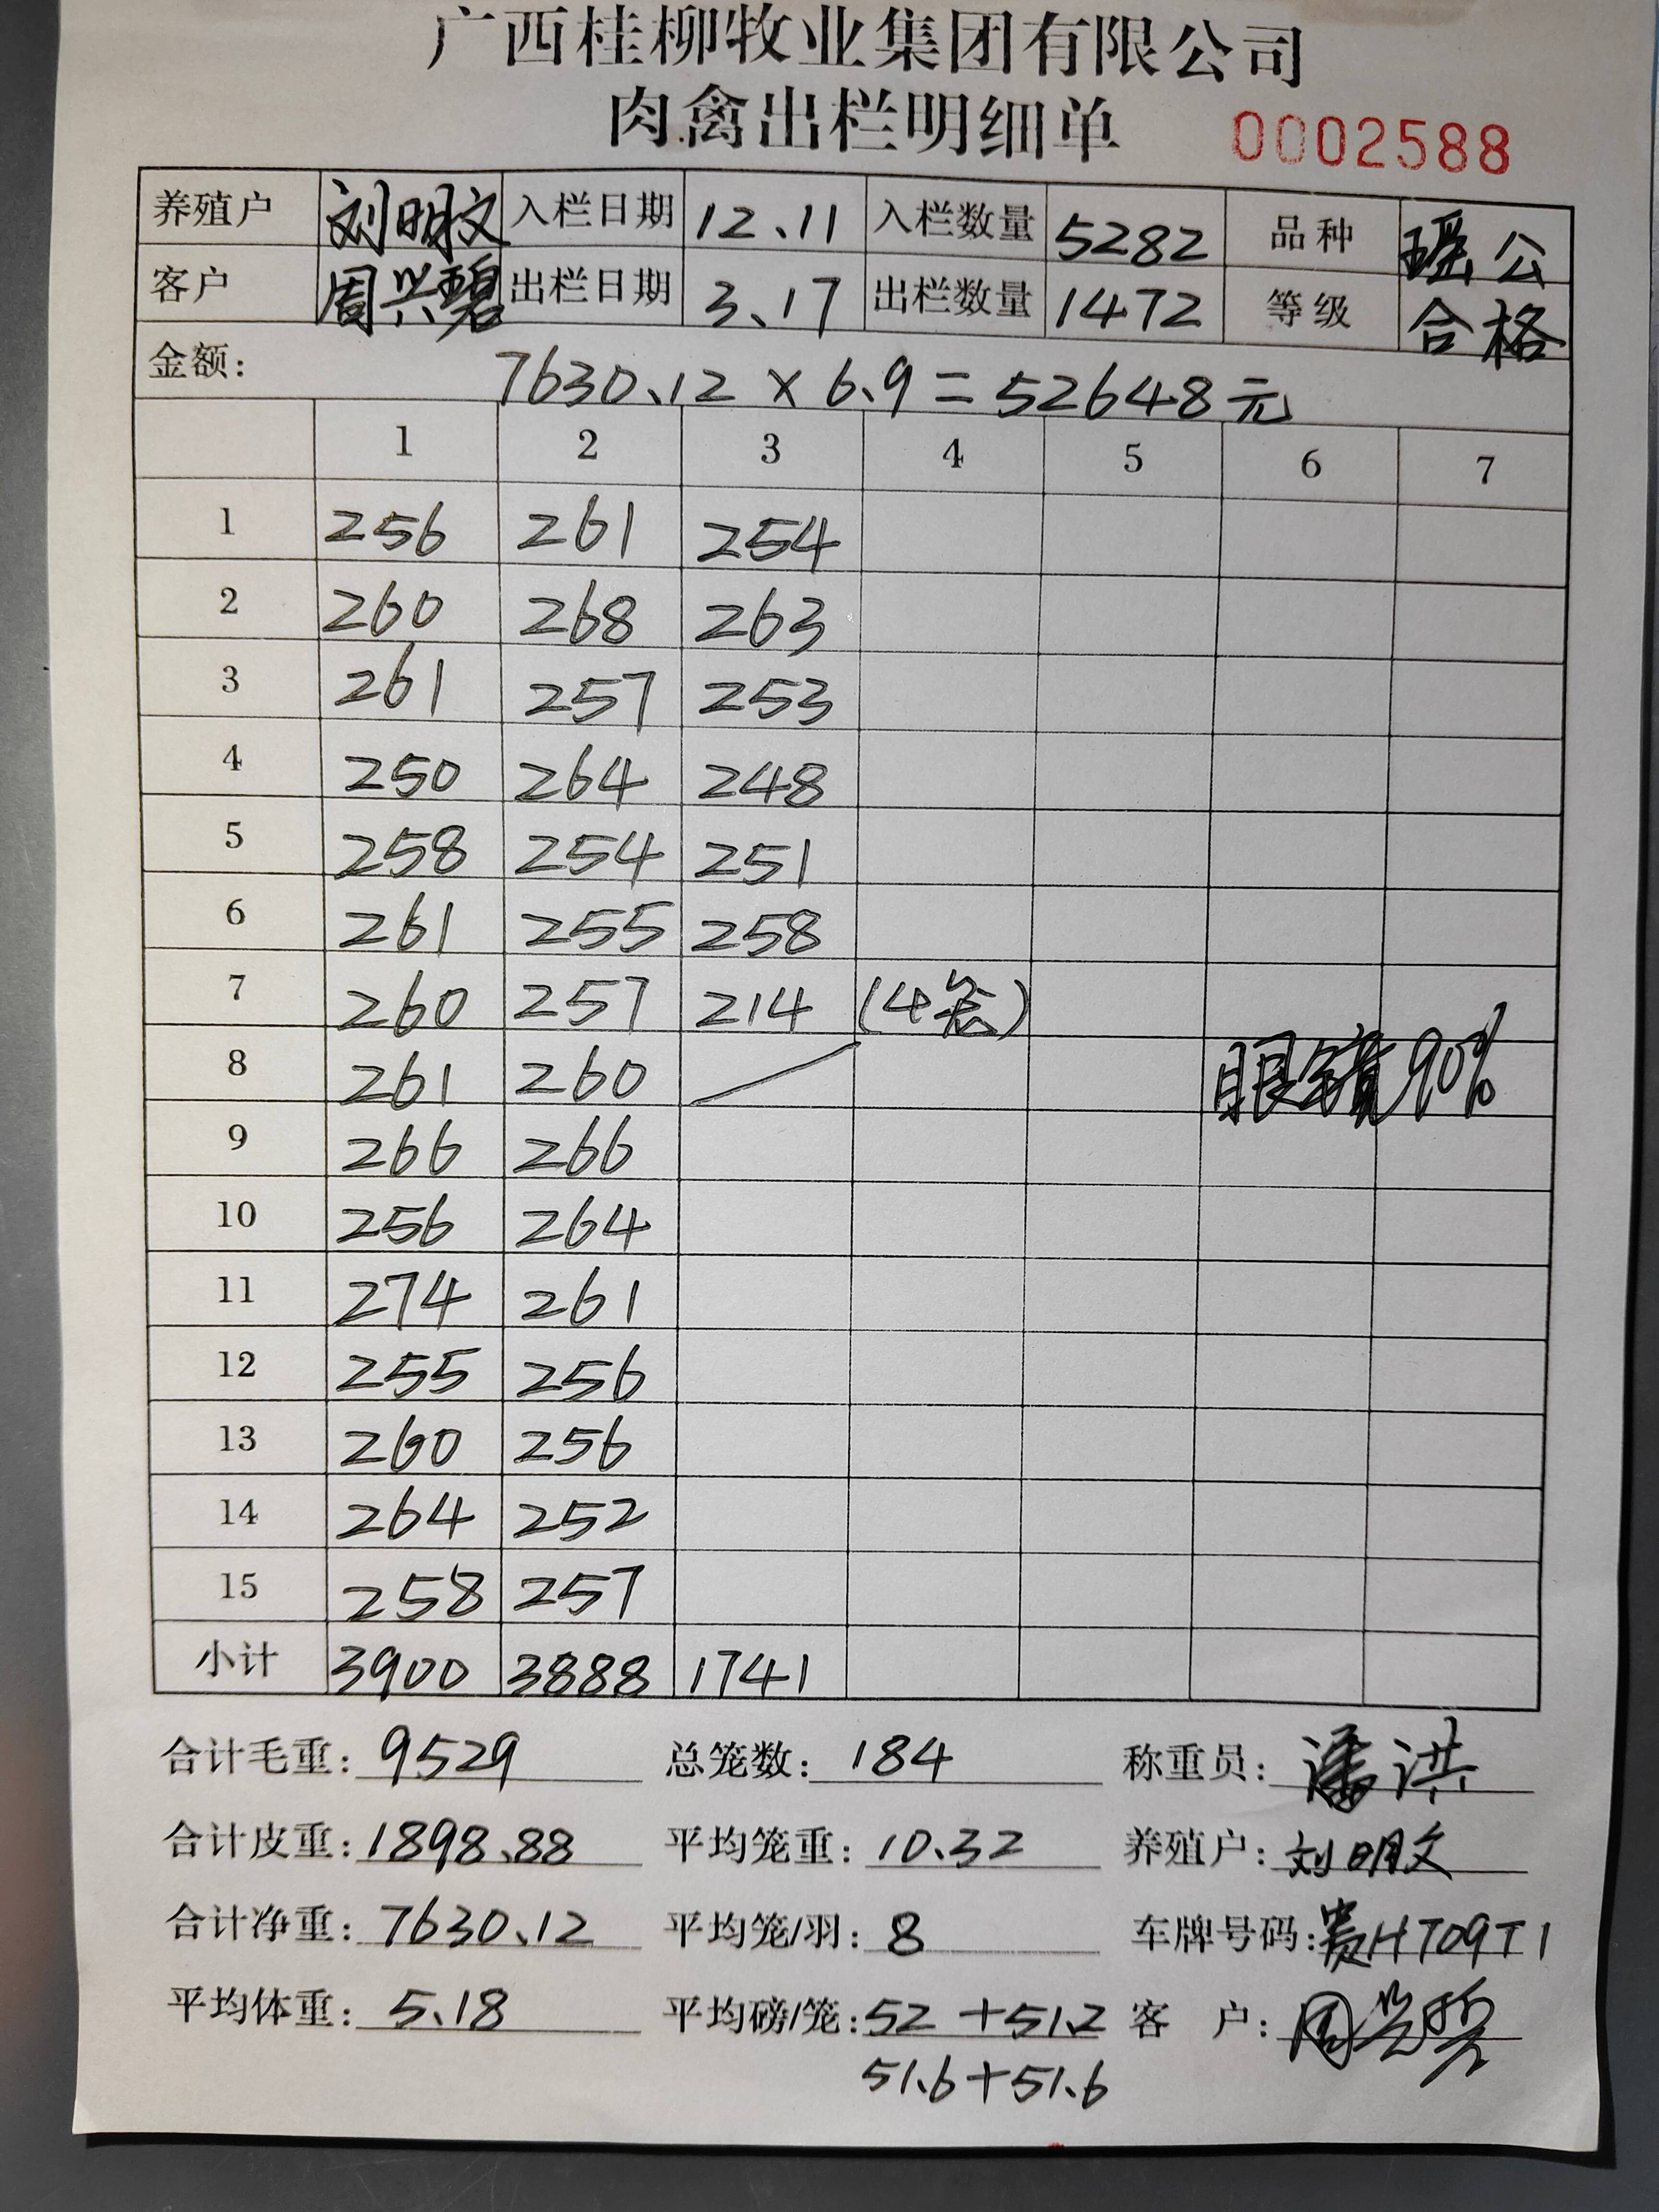 广西桂柳牧业集团有限公司
肉禽出栏明细单 0002588
养殖户 刘明文 入栏日期 12.11 入栏数量 5282 品种 瑶公
客户 周兴碧 出栏日期 3.17 出栏数量 1472 等级 合格
金额: 7630.12 × 6.9 = 52648元
1 2 3 4 5 6 7
1 256 261 254
2 260 268 263
3 261 257 253
4 250 264 248
5 258 254 251
6 261 255 258
7 260 257 214 (4笼)
8 261 260 眼睛90%
9 266 266
10 256 264
11 274 261
12 255 256
13 260 256
14 264 252
15 258 257
小计 3900 3888 1741
合计毛重: 9529 总笼数: 184 称重员: 潘洪
合计皮重: 1898.88 平均笼重: 10.32 养殖户: 刘明文
合计净重: 7630.12 平均笼/羽: 8 车牌号码: 贵HT09T1
平均体重: 5.18 平均磅/笼: 52 +51.2 客 户: 周兴碧
51.6+51.6